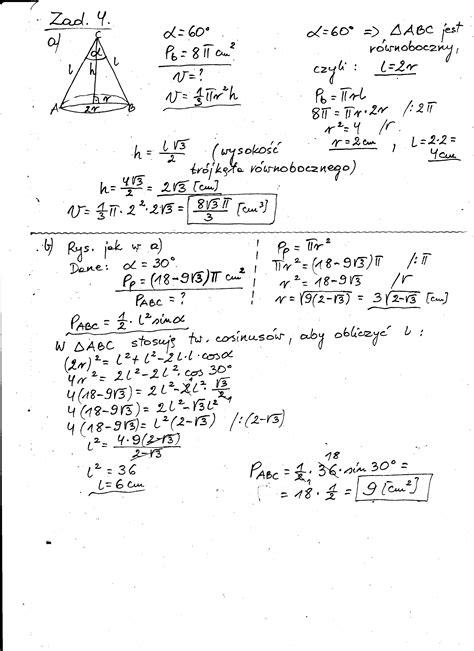 Zad. 4.
a)
C
α
l h l
A r B
2r
α = 60°
P_b = 8π cm²
V = ?
V = 1/3 πr²h
α = 60° => △ABC jest
równoboczny,
czyli : l = 2r
P_b = πrl
8π = πr·2r /:2π
r² = 4 /√
r = 2cm , l = 2·2 =
4cm
h = l√3/2 (wysokość
trójkąta równobocznego)
h = 4√3/2 = 2√3 [cm]
V = 1/3 π·2²·2√3 = 8√3π/3 [cm³]
b) Rys. jak w a)
Dane: α = 30°
P_p = (18-9√3)π cm²
P_ABC = ?
P_p = πr²
πr² = (18-9√3)π /:π
r² = 18-9√3 /√
r = √9(2-√3) = 3√2-√3 [cm]
P_ABC = 1/2 · l² sinα
W △ABC stosuję tw. cosinusów, aby obliczyć l :
(2r)² = l² + l² - 2l·l·cosα
4r² = 2l² - 2l²·cos 30°
4(18-9√3) = 2l² - 2l²·√3/2
4(18-9√3) = 2l² - √3l²
4(18-9√3) = l²(2-√3) /:(2-√3)
l² = 4·9(2-√3)/2-√3
l² = 36
l = 6cm
P_ABC = 1/2 · 36 · sin 30° =
18
= 18 · 1/2 = 9 [cm²]